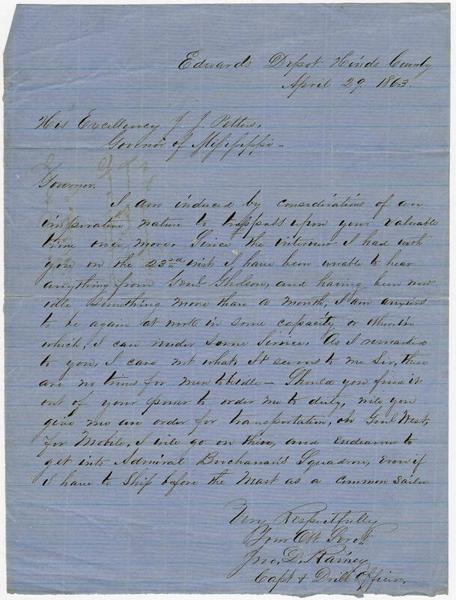 Edwards Depot Hinds County
April 29, 1863.
His Excellency J. J. Pettus,
Govenor of Mississippi—
Governor.
I am induced by considerations of an
imperative nature to trespass upon your valuable
time once more. Since the interview I had with
you on the 23rd inst, I have been unable to hear
anything from Genl Gholson, and having been now
idle something more than a month, I am anxious
to be again at work in some capacity or other in
which, I can render some service. As I remarked
to you, I care not what, It seems to me Sir, these
are no times for men to be idle— Should you find it
out of your power to order me to duty, will you
give me an order for transportation, on Genl West,
for Mobile, I will go on there, and endeavor to
get into Admiral Buchanan's Squadron, even if
I have to Ship before the Mast as a common Sailor
Very Respectfully
Your Obt Servt
Jno. D. Rainey
Capt & Drill Officer.